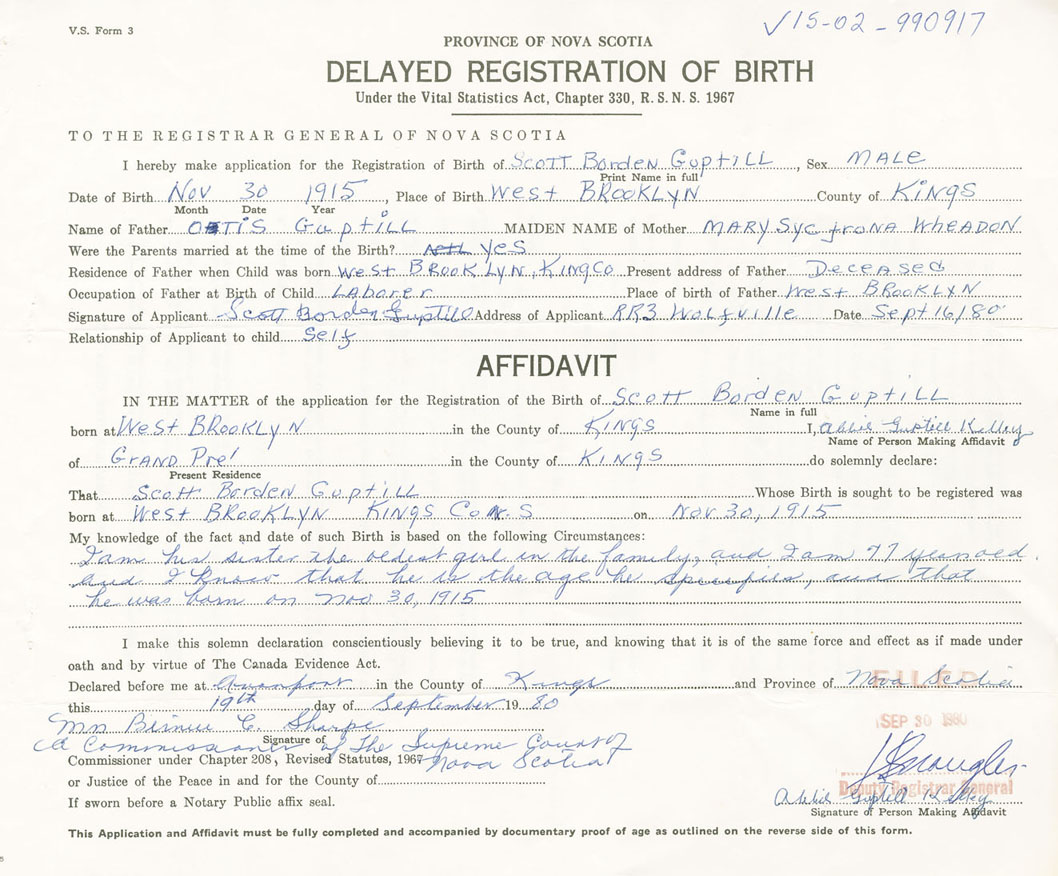 V.S. Form 3
✓15-02-990917
PROVINCE OF NOVA SCOTIA
DELAYED REGISTRATION OF BIRTH
Under the Vital Statistics Act, Chapter 330, R.S.N.S. 1967
TO THE REGISTRAR GENERAL OF NOVA SCOTIA
I hereby make application for the Registration of Birth of Scott Borden Guptill, Sex MALE
Print Name in full
Date of Birth Nov 30 1915, Place of Birth West BROOKLYN County of KINGS
Month Date Year
Name of Father OTIS Guptill MAIDEN NAME of Mother MARY WHEADON
Were the Parents married at the time of the Birth? yes
Residence of Father when Child was born West BROOKLYN, KING CO Present address of Father DECEASED
Occupation of Father at Birth of Child LABORER Place of birth of Father West BROOKLYN
Signature of Applicant Scott Borden Guptill Address of Applicant RR3 Wolfville Date Sept 16/80
Relationship of Applicant to child Self
AFFIDAVIT
IN THE MATTER of the application for the Registration of the Birth of Scott Borden Guptill
Name in full
born at West BROOKLYN in the County of KINGS I, Abbie Guptill Kelley
Name of Person Making Affidavit
of GRAND Pre' in the County of KINGS do solemnly declare:
Present Residence
That Scott Borden Guptill Whose Birth is sought to be registered was
born at West BROOKLYN KINGS Co N.S on Nov. 30, 1915
My knowledge of the fact and date of such Birth is based on the following Circumstances:
I am his sister the oldest girl in the family, and I am 77 years old.
and I know that he is the age he specifies, and that
he was born on Nov 30, 1915
I make this solemn declaration conscientiously believing it to be true, and knowing that it is of the same force and effect as if made under
oath and by virtue of The Canada Evidence Act.
Declared before me at in the County of Kings and Province of Nova Scotia
FILED
this 19th day of September 1980
SEP 30 1980
C. Sharpe
Signature of
a Commissioner of The Supreme Court of
Commissioner under Chapter 208, Revised Statutes, 1967 Nova Scotia
or Justice of the Peace in and for the County of
Deputy Registrar General
If sworn before a Notary Public affix seal.
Abbie Guptill Kelley
Signature of Person Making Affidavit
This Application and Affidavit must be fully completed and accompanied by documentary proof of age as outlined on the reverse side of this form.